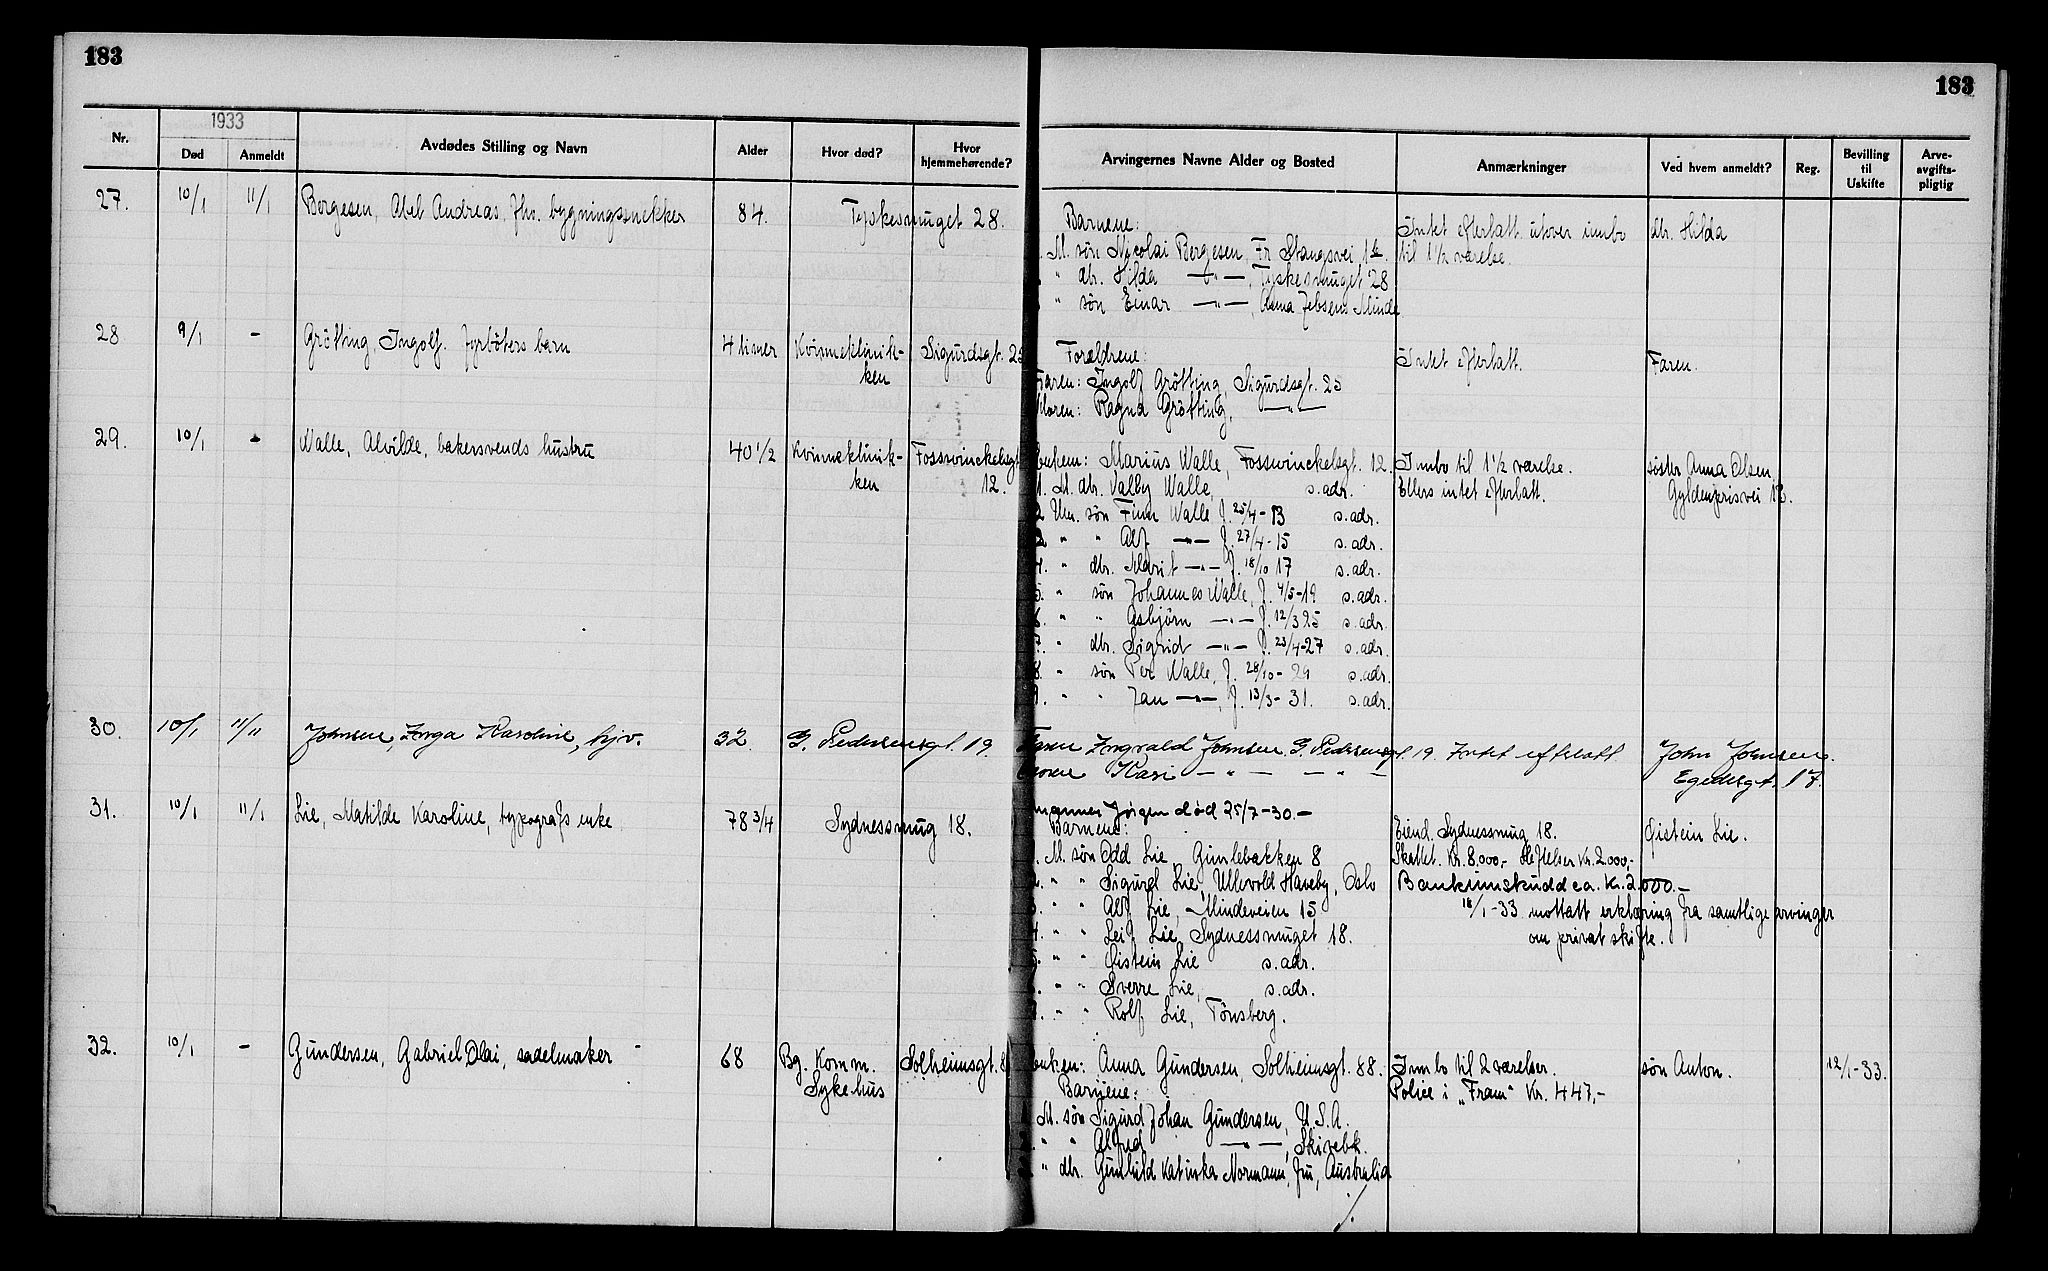 183
183
1933
Nr. Død Anmeldt Avdødes Stilling og Navn Alder Hvor død? Hvor hjemmehørende? Arvingernes Navne Alder og Bosted Anmærkninger Ved hvem anmeldt? Reg. Bevilling til Uskifte Arve-avgifts-pligtig
27. 10/1 11/1 Børgesen, Abel Andreas, fhv. bygningssnekker 84. Tyskesmuget 28. Barnene: Intet efterlatt utover innbo dtr. Hilda
M. søn Nicolai Børgesen, Fr. Stangsvei til 1½ værelse.
" dtr. Hilda —"—, Tyskesmuget 28
" søn Einar —"—, Anna Jebsens Minde
28 9/1 - Grötting, Ingolf. fyrbøters barn 4 timer Kvinneklinik- Sigurdsgt. 25 Foreldrene: Intet efterlatt. Faren.
ken Faren: Ingolf Grötting, Sigurdsgt. 25
Moren: Ragna Grötting, —"—
29. 10/1 - Walle, Alvilde, bakersvends hustru 40 1/2 Kvinneklinik- Fosswinckelsgt. Marius Walle, Fosswinckelsgt. 12. Innbo til 1½ værelse. søster Anna Olsen,
ken 12. 1. M. dtr. Valby Walle, s. adr. Ellers intet efterlatt. Gyldenprisvei 12.
2 Um. søn Finn Walle f. 25/4-13 s. adr.
3 " " Alf —"— f. 27/4-15 s. adr.
4. " dtr. Marit —"— f. 18/10 17 s. adr.
5. " søn Johannes Walle, f. 4/5-19 s. adr.
6. " " Asbjörn —"— f. 12/3 25 s. adr.
7. " dtr. Sigrid —"— f. 23/4-27 s. adr.
8. " søn Per Walle, f. 28/10-29 s. adr.
9. " " Jan —"—, f. 13/3-31. s. adr.
30. 10/1 11/11 Johnsen, Inga Karoline, hjv. 32. G. Pedersensgt. 19. Faren Ingvald Johnsen. G. Pedersensgt. 19. Intet efterlatt John Johnsen.
Moren Kari —"— —"— Egedesgt. 17.
31. 10/1 11/1 Lie, Matilde Karoline, typografs enke 78 3/4 Sydnessmug 18. Jørgen død 25/7-30.-
Barnene: Eiend. Sydnessmug 18. Øistein Lie.
M. søn Odd Lie, Gimlebakken 8 Skattet. Kr. 8.000,- Heftelser Kr. 2.000,-
" " Sigurd Lie, Ullevold Haveby, Oslo Bankinnskudd ca. Kr. 2.000.-
" " Alf Lie, Mindeveien 15 18/1-33 mottatt erklæring fra samtlige arvinger
4. " " Leif Lie, Sydnessmuget 18. om privat skifte.
5. " " Øistein Lie s. adr.
" " Sverre Lie, s. adr.
" " Rolf Lie, Tönsberg.
32. 10/1 - Gundersen, Gabriel Olai, sadelmaker 68 Bg. Komm. Solheimsgt. 8 Enken: Anna Gundersen, Solheimsgt. 88. Innbo til 2 værelser. søn Anton. 12/1-33.
Sykehus Barnene: Police i „Fram" Kr. 447,-
M. søn Sigurd Johan Gundersen, U.S.A.
" " Alfred —"—, Skivebk.
" dtr. Gunhild Katinka Normann, fru, Australia
./.